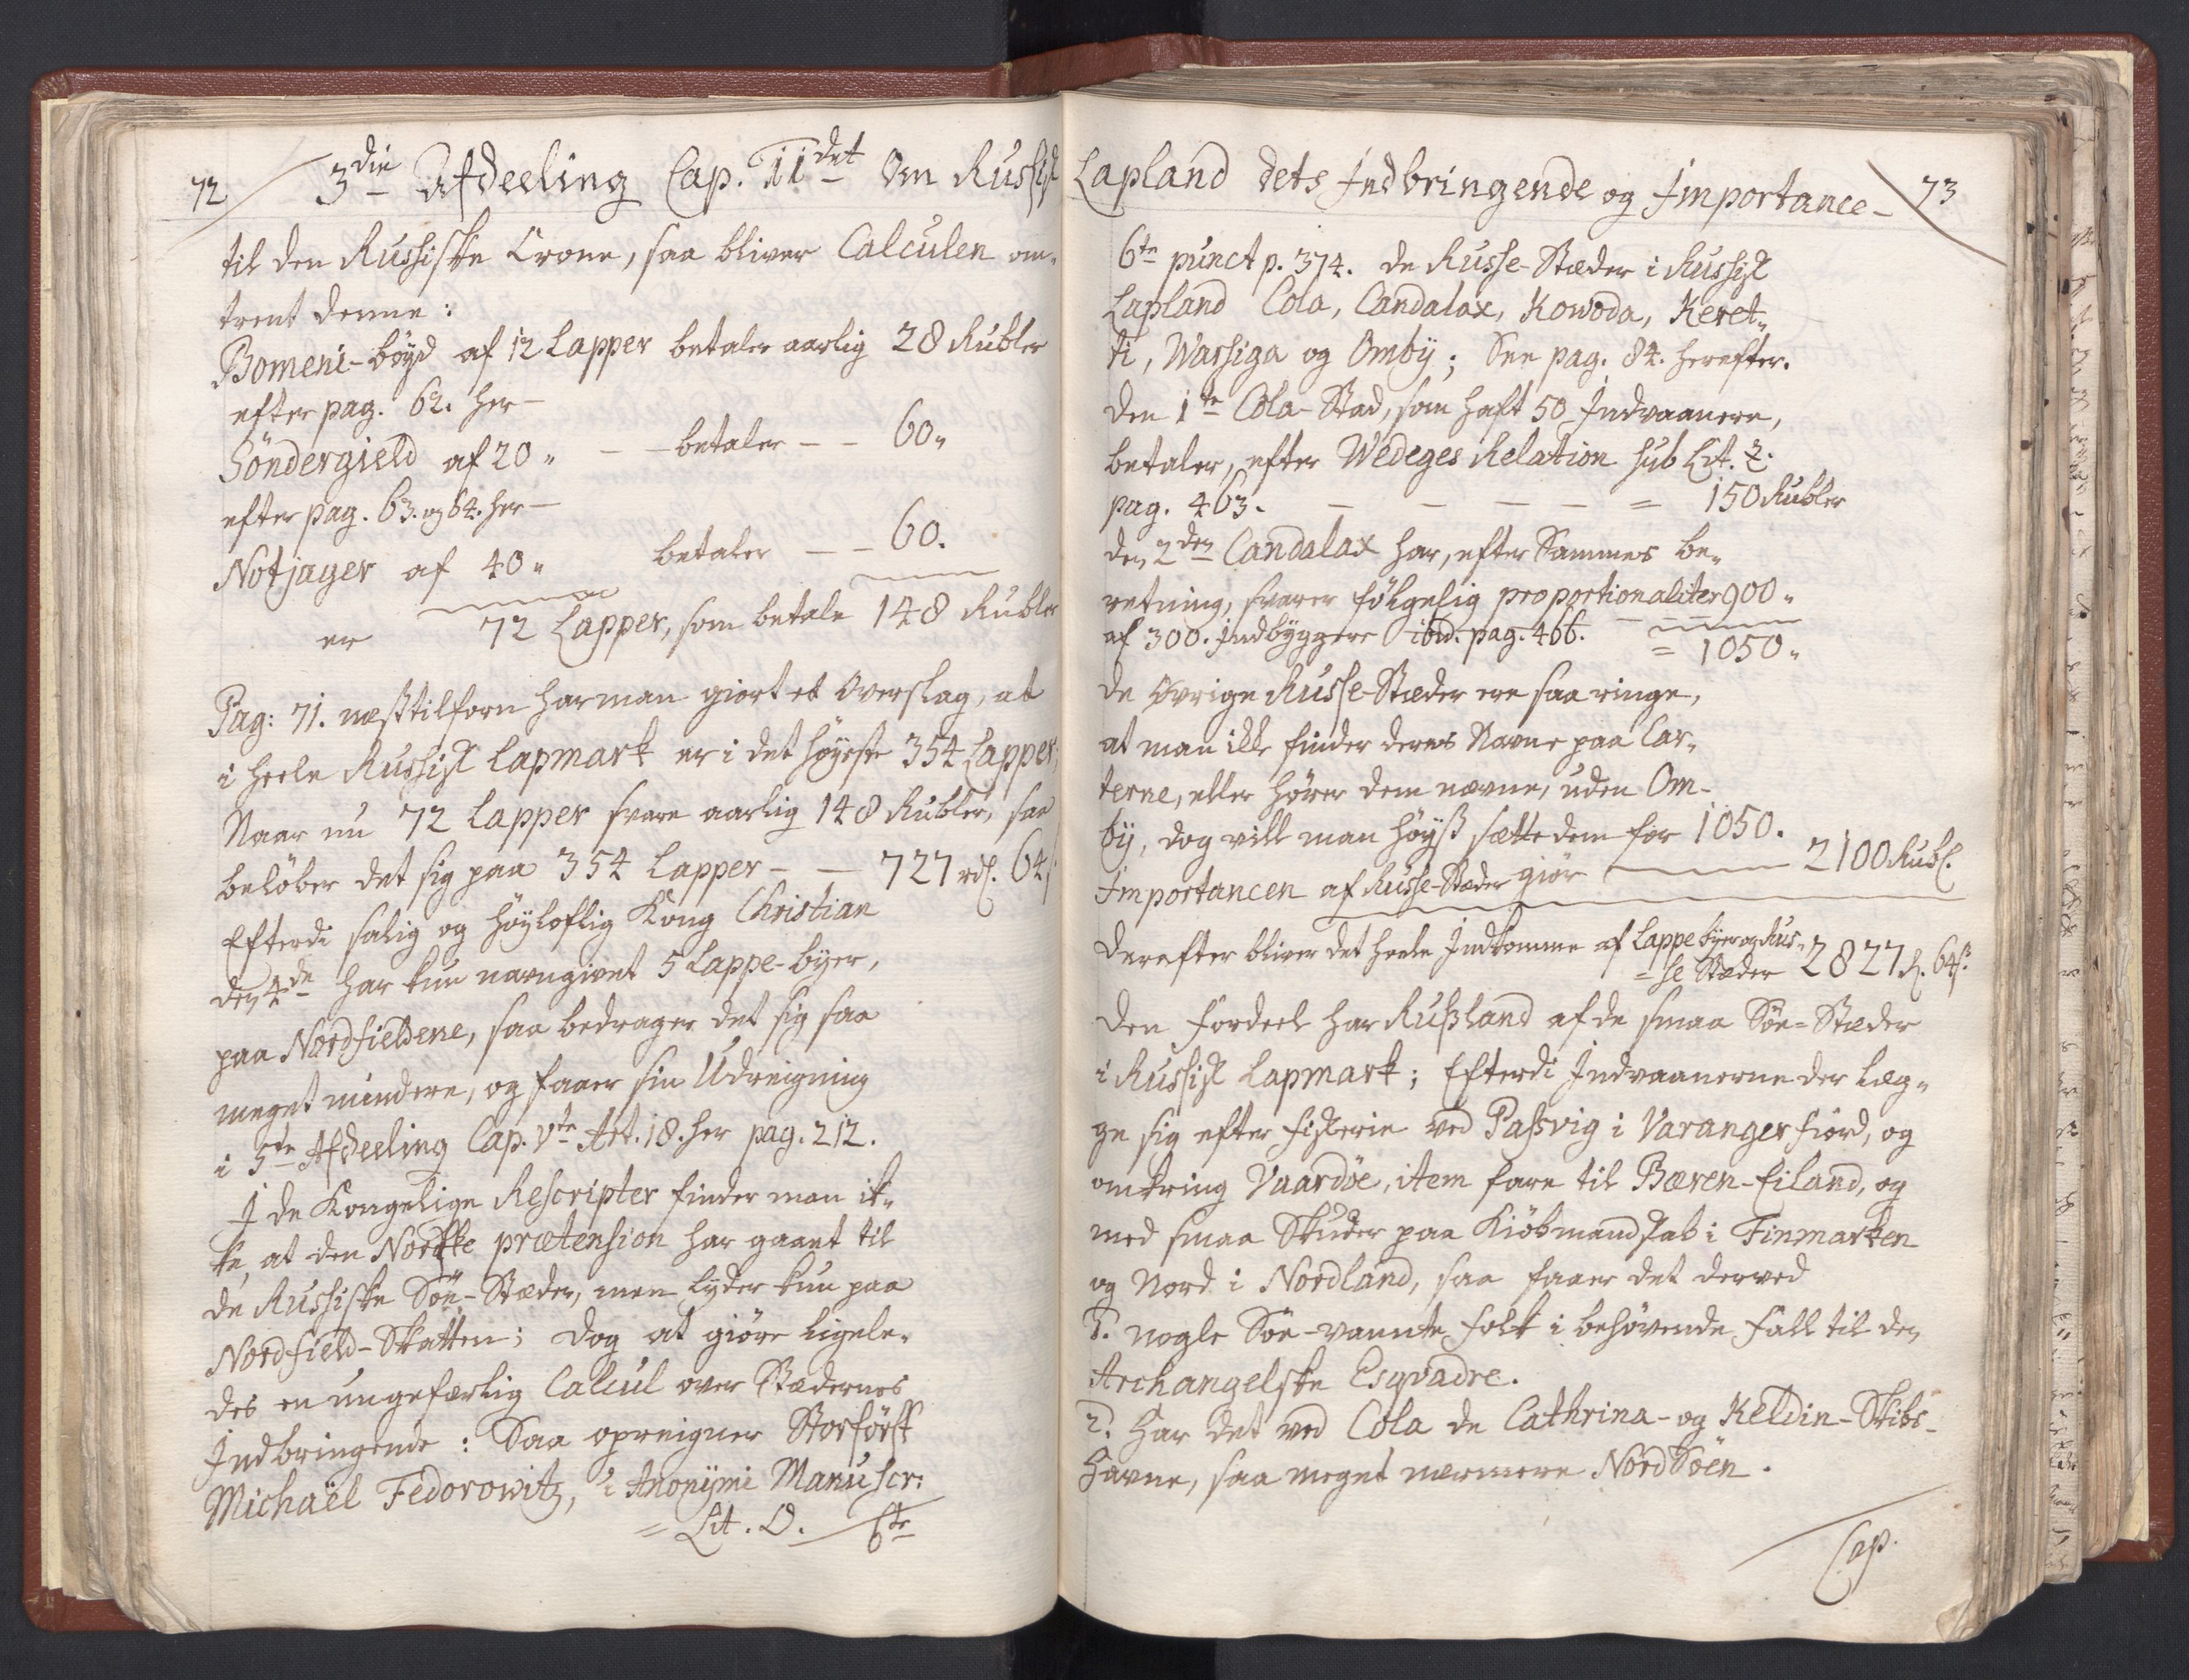 72
3die Afdeeling Cap. 11det Om Russisk
til den Russiske Crone, saa bliver Calculen om-
trent denne:
Bomeni-böyd af 12 Lapper betaler aarlig 28 Rubler
efter pag. 62. her-
Söndergield af 20 „ - - betaler - - 60„
efter pag. 63. og 64. her-
Notjager af 40 „ betaler - - 60.
er 72 Lapper, som betale 148 Rubler
Pag: 71. næst tilforn har man giort et Overslag, at
i heele Russisk Lapmark er i det høyeste 354 Lapper;
Naar nu 72 Lapper svare aarlig 148 Rubler, saa
beløber det sig paa 354 Lapper - - 727 rdl. 64 s
Efterdi salig og høyloflig Kong Christian
den 4de har kun navngivet 5 Lappe-byer,
paa Nordfieldene, saa bedrager det sig saa
meget mindere, og faaer sin Udreigning
i 5te Afdeeling Cap. Vte Art. 18. her pag. 212.
I de Kongelige Rescripter finder man ik-
ke, at den Norske prætension har gaaet til
de Russiske Søe-Stæder, men lyder kun paa
Nordfield-Skatten; Dog at giøre ligele-
des en ungefærlig Calcul over Stædernes
Indbringende: Saa opreigner Storförst
Michaël Fedorowitz, i Anonÿmi Manuscr:
= Lit. O. 6te
Lapland dets Indbringende og Importance-
73
6te punct p. 374. de Russe-Stæder i Russisk
Lapland Cola, Candalax, Kowoda, Keret-
ti, Warsiga og Ombÿ; See pag. 84. herefter.
Den 1te Cola-Stad, som haft 50 Indvaanere,
betaler, efter Wedeges Relation sub Lit. Z.
pag. 463. - - - - = 150 Rubler
den 2den Candalax har, efter Sammes be-
retning, svarer følgelig proportionaliter 900 „
af 300. Indbyggere ibid. pag. 466. = 1050 „
de øvrige Russe-Stæder ere saa ringe,
at man ikke finder deres Navne paa Car-
terne, eller hører dem nævne, uden Om-
bÿ, dog vill man høyst sætte dem for 1050.
Importancen af Russe-Stæder giør 2100 Rubl.
Derefter bliver det heele Indkomme af Lappe byer og Rus-
= se Stæder 2827 R. 64 s.
Den Fordeel har Rusland af de smaa Søe-Stæder
i Russisk Lapmark; Efterdi Indvaanerne der læg-
ge sig efter Fiskerie ved Pasvig i Varanger fiord, og
omkring Vaardöe, item fare til Bæren-Eiland, og
med smaa Skuder paa Kiöbmandskab i Finmarken
og Nord i Nordland, saa faaer det derved
1. nogle Søe-vannte Folk i behøvende Fall til den
Archangelske Esqvadre.
2. Har det ved Cola de Cathrina- og Keldin-Skibs-
Havne, saa meget nærmere NordSöen.
Cap.